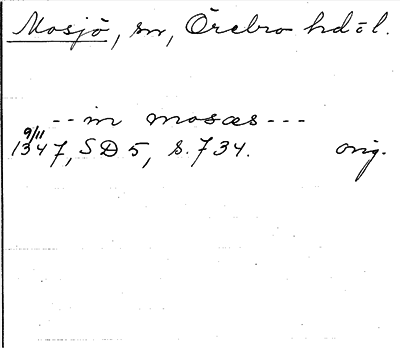 Mosjö, sn, Örebro hd o l.
-- in mosæs ---
9/11
1347, SD 5, s. 734. orig.